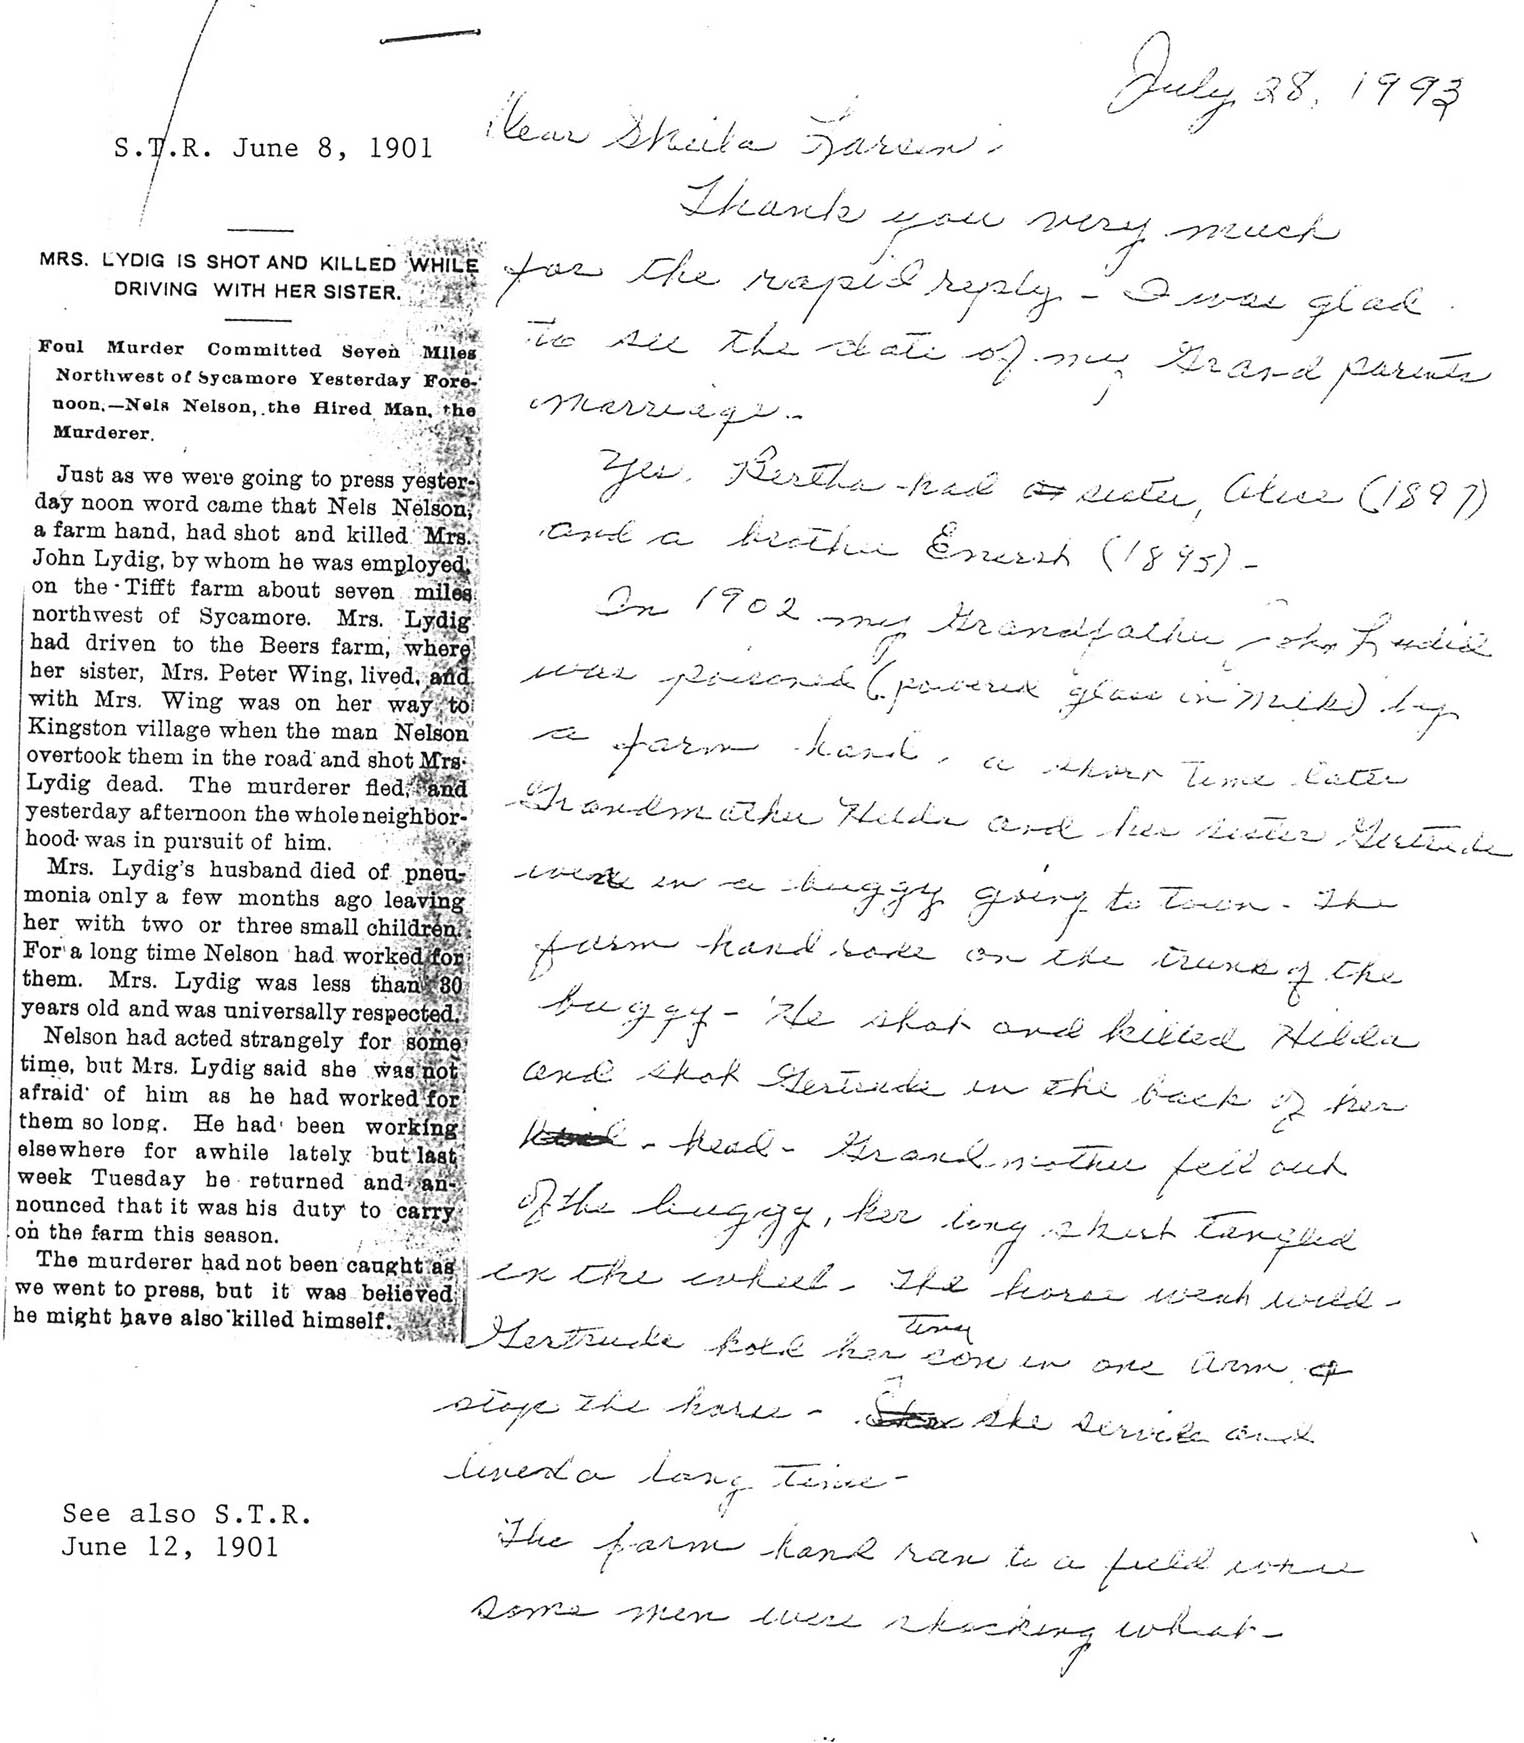 S.T.R. June 8, 1901
MRS. LYDIG IS SHOT AND KILLED WHILE
DRIVING WITH HER SISTER.
Foul Murder Committed Seven Miles
Northwest of Sycamore Yesterday Fore-
noon.—Nels Nelson, the Hired Man, the
Murderer.
Just as we were going to press yester-
day noon word came that Nels Nelson,
a farm hand, had shot and killed Mrs.
John Lydig, by whom he was employed,
on the Tifft farm about seven miles
northwest of Sycamore. Mrs. Lydig
had driven to the Beers farm, where
her sister, Mrs. Peter Wing, lived, and
with Mrs. Wing was on her way to
Kingston village when the man Nelson
overtook them in the road and shot Mrs.
Lydig dead. The murderer fled, and
yesterday afternoon the whole neighbor-
hood was in pursuit of him.
Mrs. Lydig's husband died of pneu-
monia only a few months ago leaving
her with two or three small children.
For a long time Nelson had worked for
them. Mrs. Lydig was less than 30
years old and was universally respected.
Nelson had acted strangely for some
time, but Mrs. Lydig said she was not
afraid of him as he had worked for
them so long. He had been working
elsewhere for awhile lately but last
week Tuesday he returned and an-
nounced that it was his duty to carry
on the farm this season.
The murderer had not been caught as
we went to press, but it was believed
he might have also killed himself.
See also S.T.R.
June 12, 1901
July 28, 1993
Dear Sheila Larsen,
Thank you very much
for the rapid reply - I was glad
to see the date of my Grand parents
marriage.-
Yes, Bertha had a sister, Alice (1897)
and a brother (1895) -
In 1902 my Grandfather John
was poisoned (powered glass in milk) by
a farm hand, a short time later
Grandmother Hilda and her sister Gertrude
were in a buggy going to town - The
farm hand rode on the trunk of the
buggy - He shot and killed Hilda
and shot Gertrude in the back of her
- head - Grandmother fell out
of the buggy, her long skirt tangled
in the wheel - The horse went wild -
Gertrude hold her tiny son in one arm &
stop the horse - she servive and
lived a long time -
The farm hand ran to a field where
some men were shocking wheat -